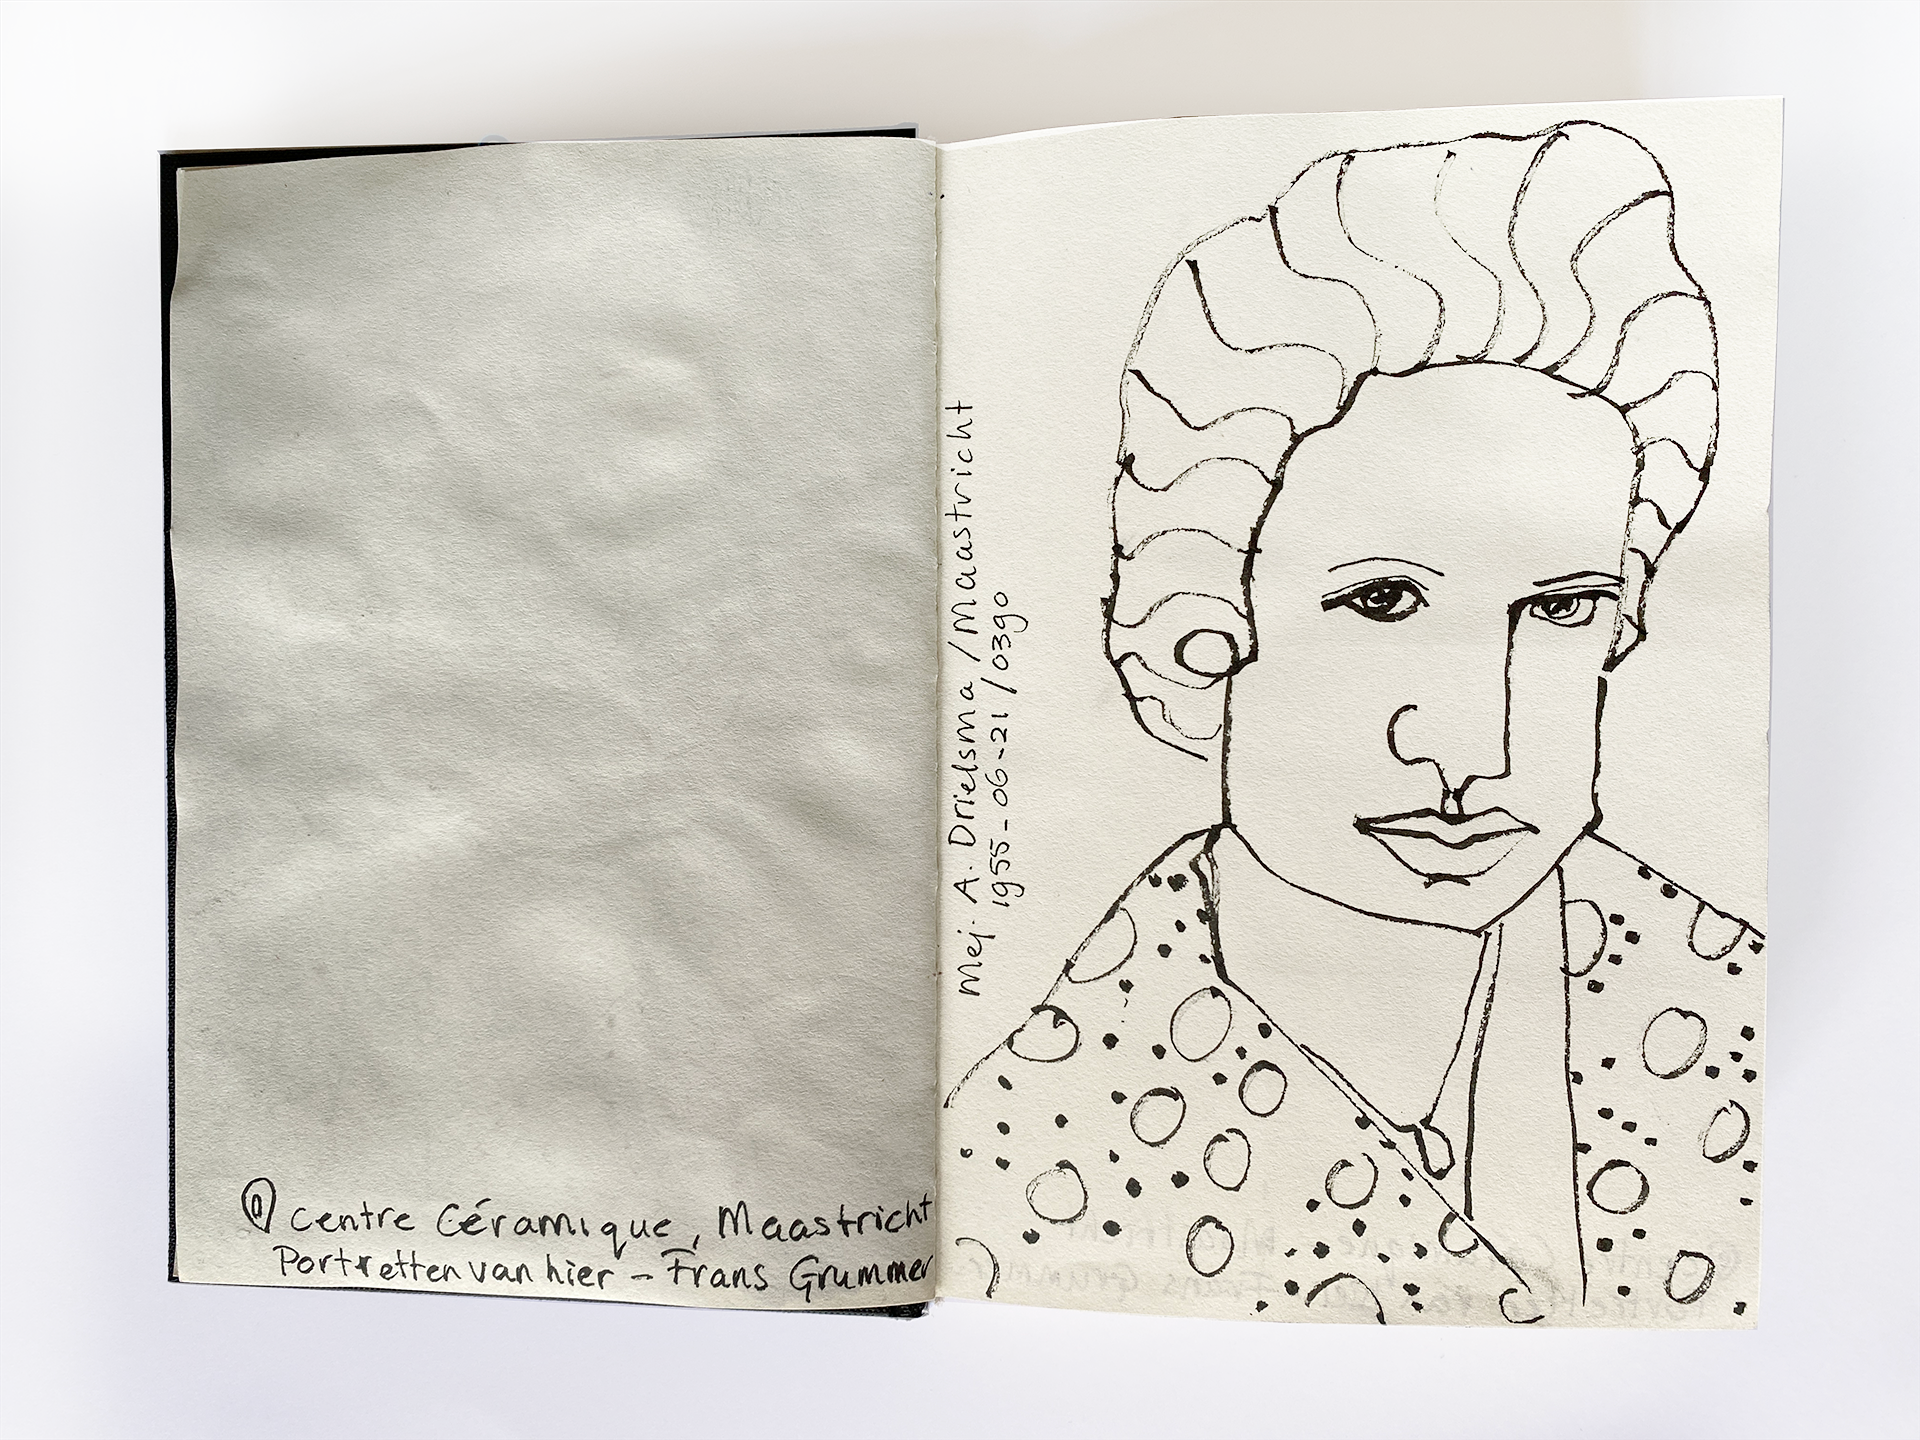 Centre Céramique, Maastricht
Portretten van hier - Frans Grummer
Mej. A. Drielsma / Maastricht
1955-06-21 / 0390